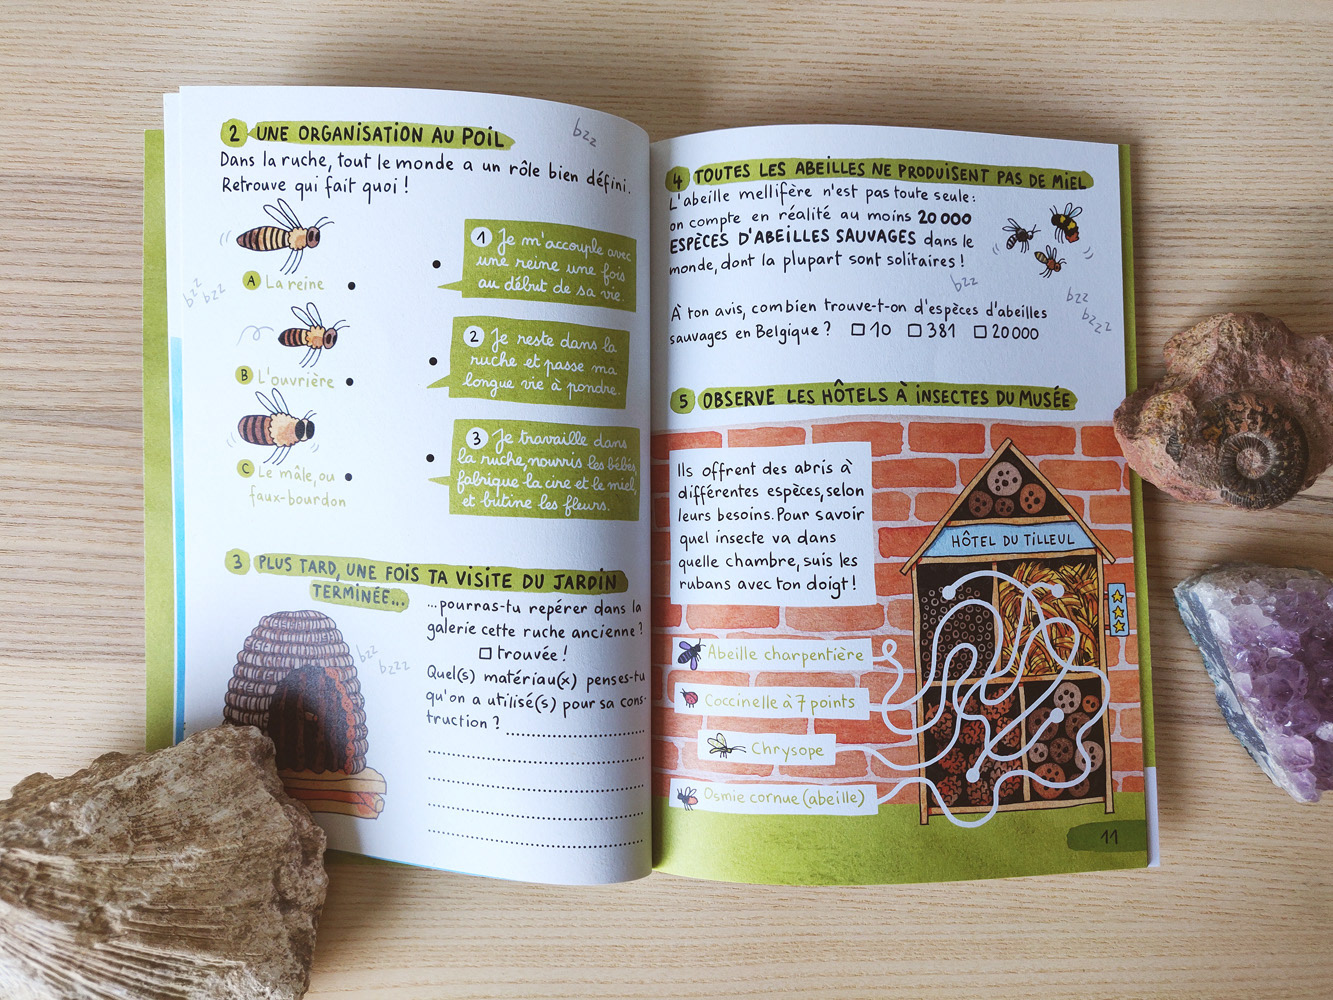 2 UNE ORGANISATION AU POIL
bzz
Dans la ruche, tout le monde a un rôle bien défini.
Retrouve qui fait quoi !
A La reine
bzz
bzz
B L'ouvrière
C Le mâle, ou
faux-bourdon
1 Je m'accouple avec
une reine une fois
au début de sa vie.
2 Je reste dans la
ruche et passe ma
longue vie à pondre.
3 Je travaille dans
la ruche, nourris les bébés,
fabrique la cire et le miel,
et butine les fleurs.
3 PLUS TARD, UNE FOIS TA VISITE DU JARDIN
TERMINÉE...
...pourras-tu repérer dans la
galerie cette ruche ancienne ?
trouvée !
bzz
bzzz
Quel(s) matériau(x) penses-tu
qu'on a utilisé(s) pour sa cons-
truction ?
4 TOUTES LES ABEILLES NE PRODUISENT PAS DE MIEL
L'abeille mellifère n'est pas toute seule :
on compte en réalité au moins 20 000
ESPÈCES D'ABEILLES SAUVAGES dans le
monde, dont la plupart sont solitaires !
bzz
bzz
bzzz
À ton avis, combien trouve-t-on d'espèces d'abeilles
sauvages en Belgique ? 10 381 20 000
5 OBSERVE LES HÔTELS À INSECTES DU MUSÉE
Ils offrent des abris à
différentes espèces, selon
leurs besoins. Pour savoir
quel insecte va dans
quelle chambre, suis les
rubans avec ton doigt !
HÔTEL DU TILLEUL
Abeille charpentière
Coccinelle à 7 points
Chrysope
Osmie cornue (abeille)
11